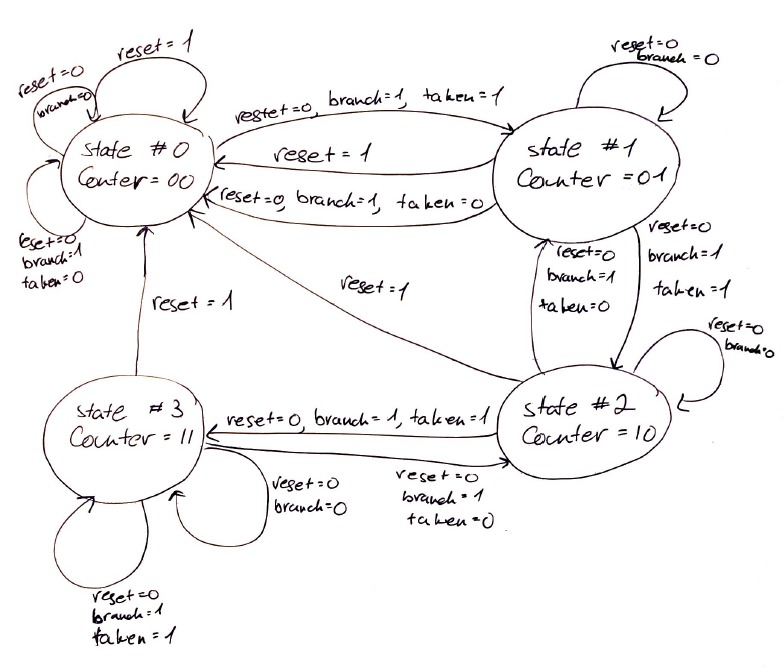 reset = 1
reset=0
branch=0
reset=0
branch=0
restet=0, branch=1, taken=1
state #0
Conter=00
reset = 1
reset=0, branch=1, taken=0
state #1
Counter=01
reset=0
branch=1
taken=0
reset=0
branch=1
taken=1
reset=0
branch=1
taken=0
reset=1
reset = 1
reset=0
branch=0
state #3
Counter = 11
reset=0, branch=1, taken=1
state #2
Counter =10
reset=0
branch=0
reset=0
branch=1
taken=0
reset=0
branch=1
taken=1